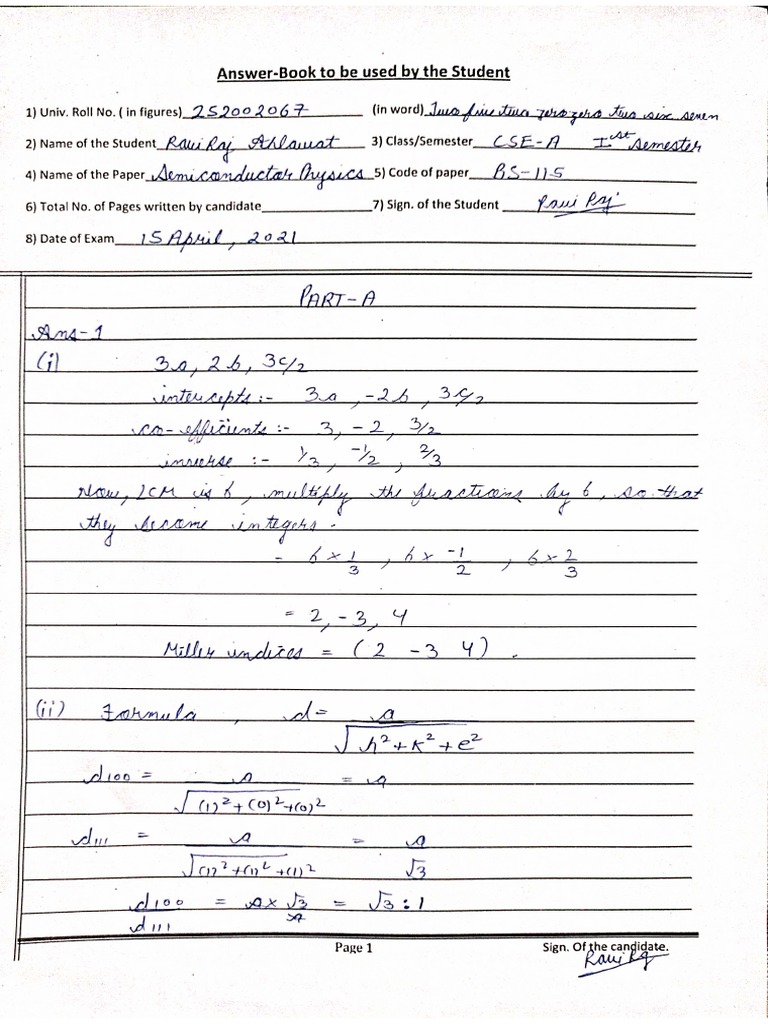 Answer-Book to be used by the Student
1) Univ. Roll No. ( in figures) 252002067 (in word) Two five two zero zero two six seven
2) Name of the Student Ravi Raj Ahlawat 3) Class/Semester CSE-A Ist semester
4) Name of the Paper Semiconductor Physics 5) Code of paper BS-115
6) Total No. of Pages written by candidate 7) Sign. of the Student Ravi Raj
8) Date of Exam 15 April, 2021
PART-A
Ans-1
(i) 3a, 2b, 3c/2
intercepts:- 3a, -2b, 3c/2
co-efficients :- 3, -2, 3/2
inverse :- 1/3, -1/2, 2/3
Now, LCM is 6, multiply the fractions by 6, so that
they become integers.
= 6 × 1/3, 6 × -1/2, 6 × 2/3
= 2, -3, 4
Miller indices = (2 -3 4).
(ii) Formula, d = a/√h²+k²+l²
d100 = a/√(1)²+(0)²+(0)² = a
d111 = a/√(1)²+(1)²+(1)² = a/√3
d100/d111 = a×√3/a = √3 : 1
Page 1 Sign. Of the candidate.
Ravi Raj